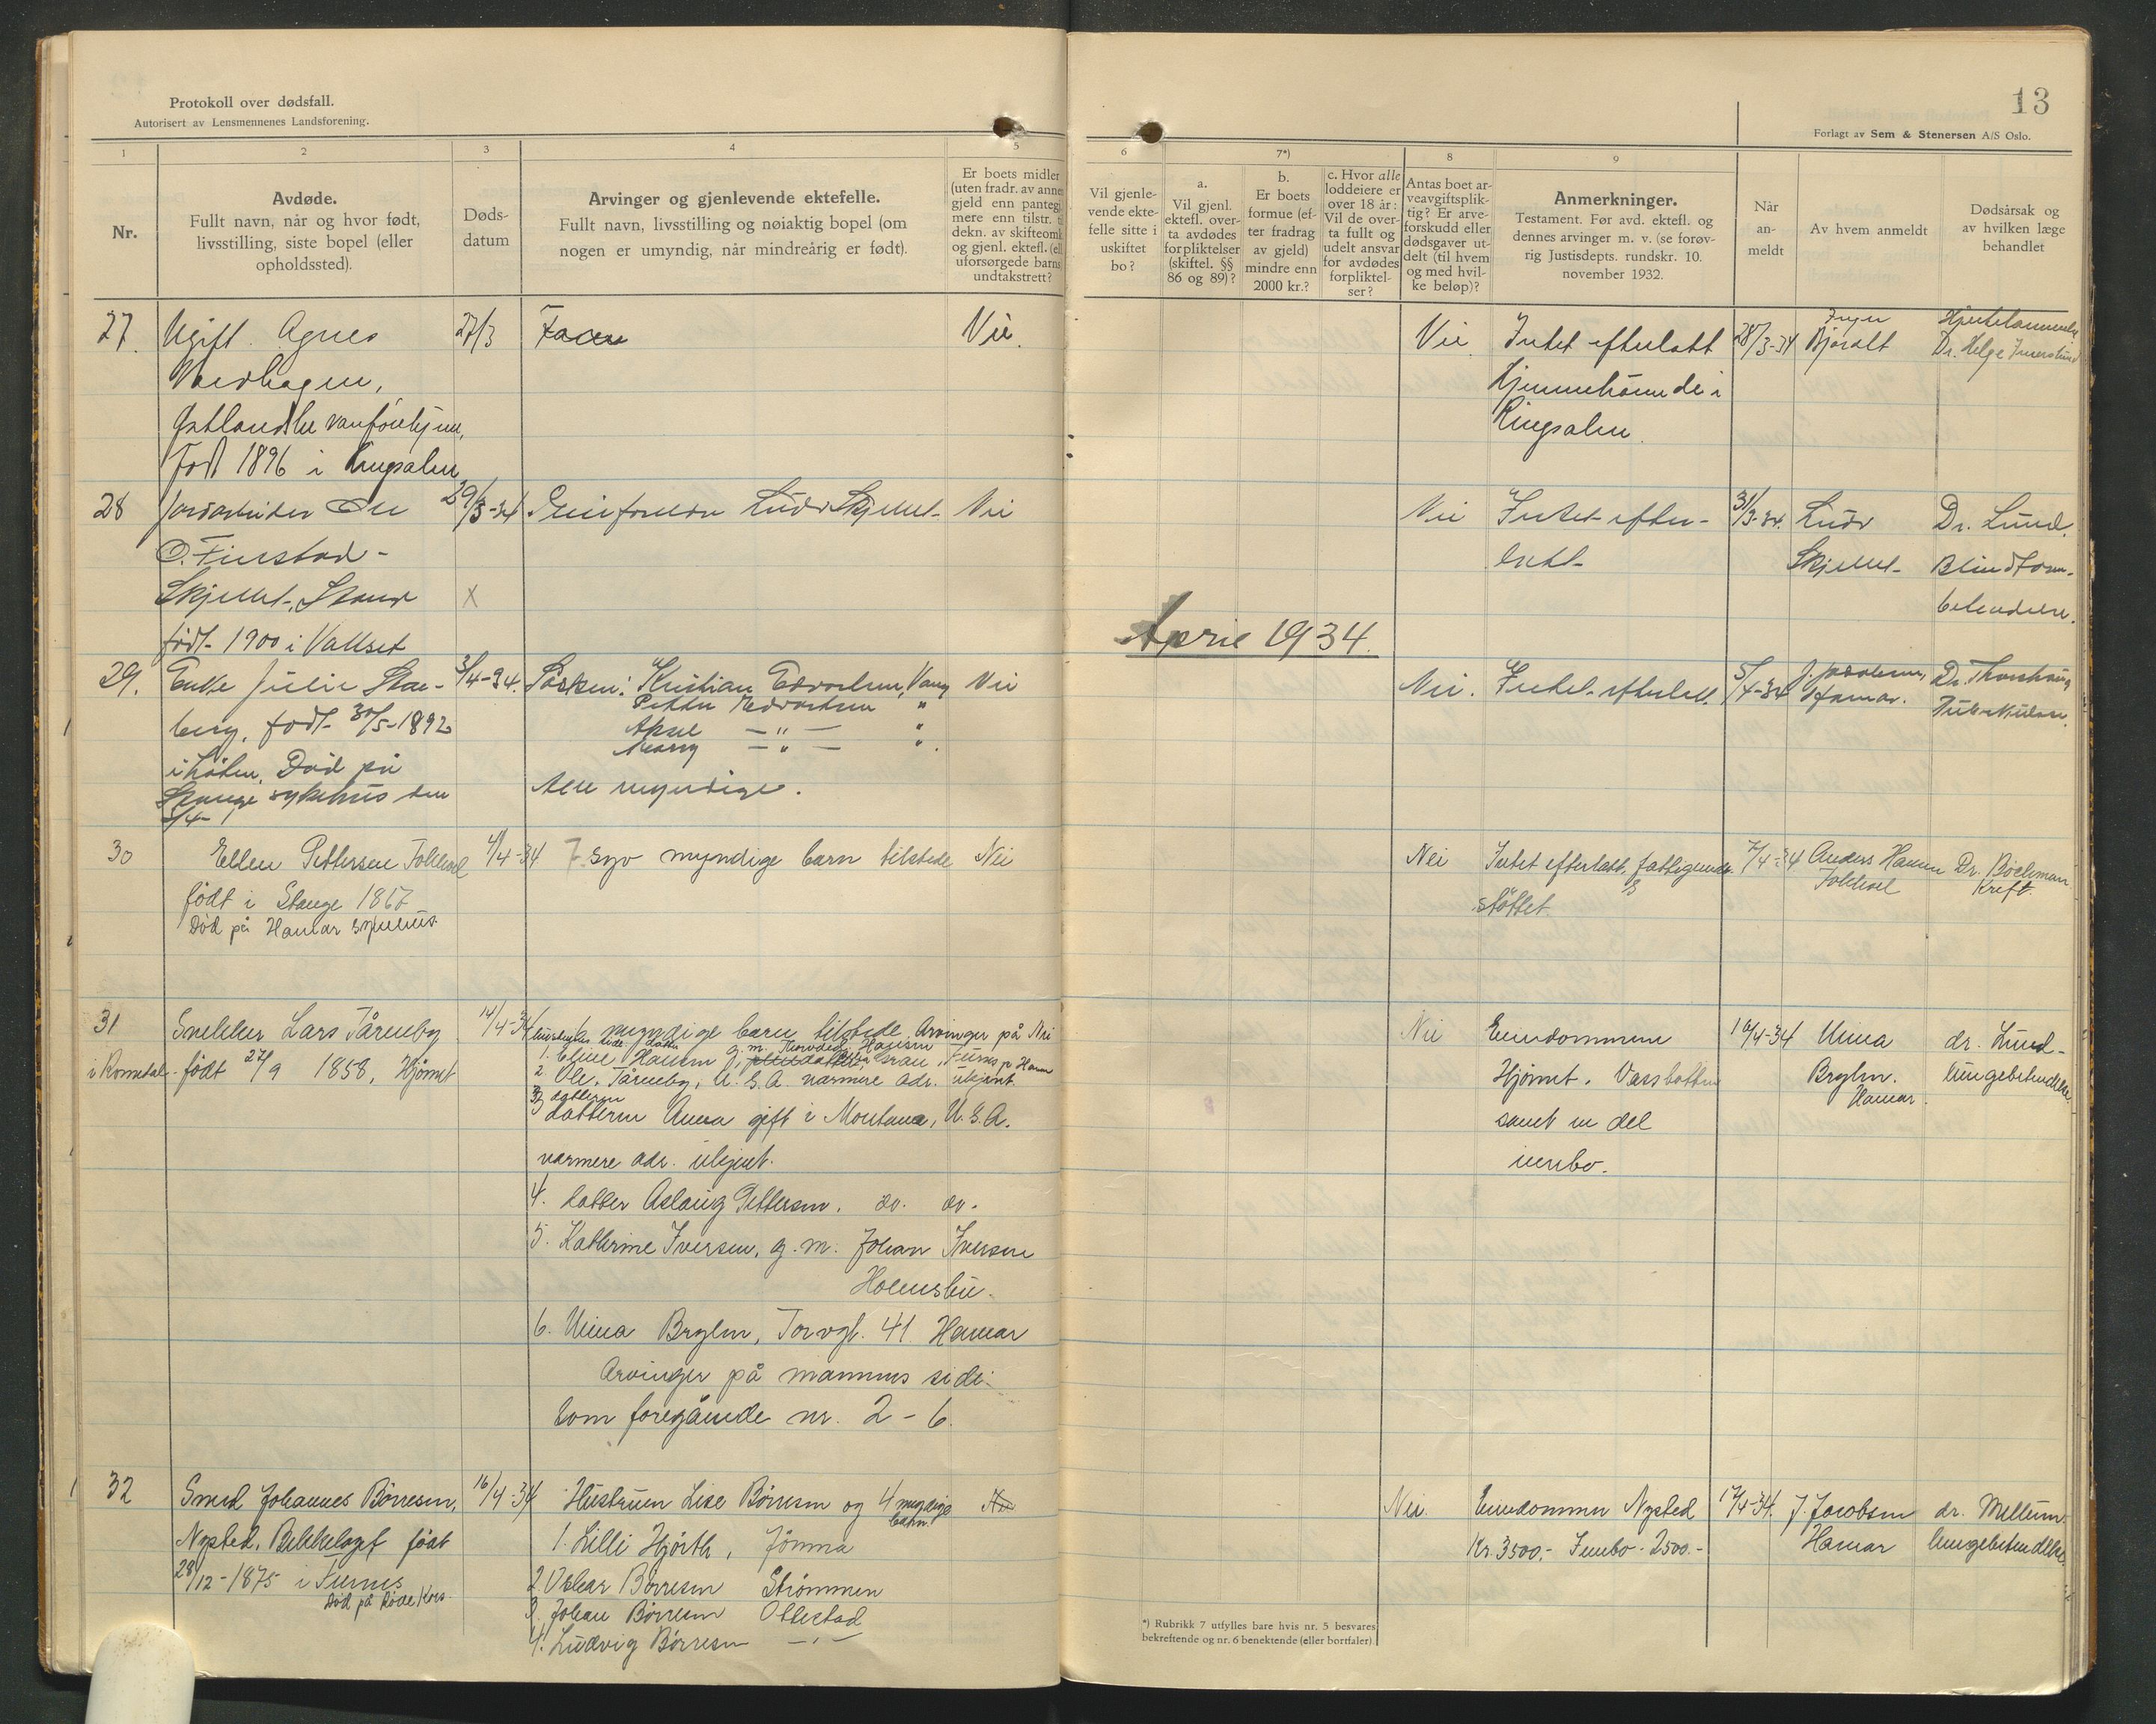 Protokoll over dødsfall.
Autorisert av Lensmennenes Landsforening.
13
Forlagt av Sem & Stenersen A/S Oslo.
1
2
3
4
5
6
7*)
8
9
Nr.
Avdøde.
Fullt navn, når og hvor født,
livsstilling, siste bopel (eller
opholdssted).
Døds-
datum
Arvinger og gjenlevende ektefelle.
Fullt navn, livsstilling og nøiaktig bopel (om
nogen er umyndig, når mindreårig er født).
Er boets midler
(uten fradr. av annen
gjeld enn pantegj.
mere enn tilstr. ti
dekn. av skifteomk
og gjenl. ektefl. (ell
uforsørgede barns
undtakstrett?
Vil gjenle-
vende ekte-
felle sitte i
uskiftet
bo?
a.
Vil gjenl.
ektefl. over-
ta avdødes
forpliktelser
(skiftel. §§
86 og 89)?
b.
Er boets
formue (ef-
ter fradrag
av gjeld)
mindre enn
2000 kr.?
c. Hvor alle
loddeiere er
over 18 år:
Vil de over-
ta fullt og
udelt ansvar
for avdødes
forpliktel-
ser?
Antas boet ar-
veavgiftsplik-
tig? Er arve-
forskudd eller
dødsgaver ut-
delt (til hvem
og med hvil-
ke beløp)?
Anmerkninger.
Testament. Før avd. ektefl. og
dennes arvinger m. v. (se forøv-
rig Justisdepts. rundskr. 10.
november 1932.
Når
an-
meldt
Av hvem anmeldt
Dødsårsak og
av hvilken læge
behandlet
27.
Ugift Agnes
født 1896 i Ringsaker
27/3
Nei.
Nei
Intet efterlatt
Hjemmehörende i
Ringsaker.
28/3-34
Dr. Helge
28
Jordarbeider Ole
O. Finstad -
Stange
født 1900 i Vallset
29/3-34
X
Nei
Nei
Intet efter-
latt
31/3-34.
Ludv
Dr. Lund.
Blindtarm-
betendelse.
April 1934.
29.
Enke Julie
berg, født 30/5-1892
i Löten. Død på
Stange sykehus den
3/4-
3/4-34.
Søsken: Kristian Edvardsen, Vang
Petter Edvardsen "
Aksel — " — "
— " — ".
Alle myndige.
Nei
Nei.
Intet efterlatt.
5/4-34
Hamar.
Dr.
Tuberkulose.
30
Ellen Pettersen
født i Stange 1867
Død på Hamar sykehus.
4/4-34
7 syv myndige barn tilstede
Nei
Nei
Intet efterlatt, fattigunder-
støttet.
7/4-34
Anders Hansen
Dr. Böckman
Kreft.
31
Snekker Lars Tårneby
i Romedal - født 27/9 1858, Hjømet
14/4-34
myndige barn tilstede. Arvinger på
Nei
2. Ole Tårneby, U.S.A. nærmere adr. ukjent.
3. datteren
datteren Anna gift i Montana, U.S.A.
nærmere adr. ukjent.
4. datter Aslaug Pettersen. do. do.
5. Kathrine Iversen, g. m. Johan Iversen
Holmsbu.
6. Mina Brylen, Torvgt. 41 Hamar
Arvinger på mannens side:
Som foregående nr. 2 - 6.
Nei
Eiendommen
Hjømet, Vassbotten
samt en del
innbo.
16/4-34
Mina
Brylen.
Hamar.
dr. Lund -
lungebetendelse.
32
Smed Johannes Börresen,
Nysted, Bekkelaget født
28/12-1875 i Furnes
Død på Røde Kors.
16/4-34
Hustruen Lise Börresen og 4 myndige
barn.
Nei
1. Lilli Hjorth, Jömna
2. Oskar Börresen Strömmen
3. Johan Börresen Ottestad
4. Ludvig Börresen — " —
Nei.
Eiendommen Nysted
Kr. 3500,- Innbo - 2500.-
17/4-34.
J. Jacobsen
Hamar
dr. Mellum.
lungebetendelse.
*) Rubrikk 7 utfylles bare hvis nr. 5 besvares
bekreftende og nr. 6 benektende (eller bortfaller)